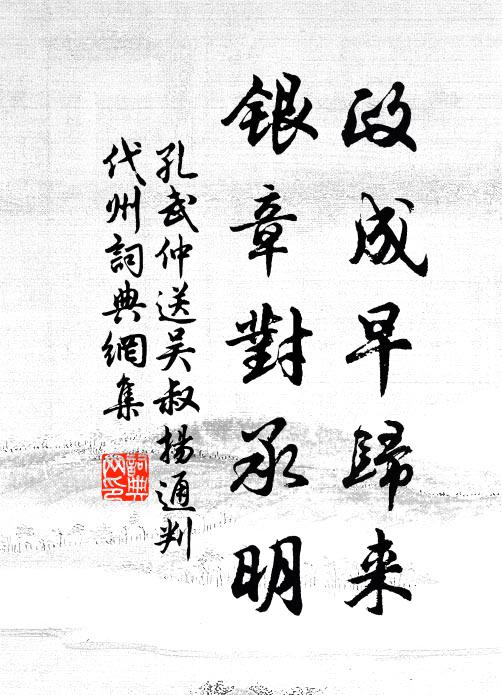 政成早歸来
銀章對承明
孔武仲送吴叔揚通判
代州詞典網集
詞典網印